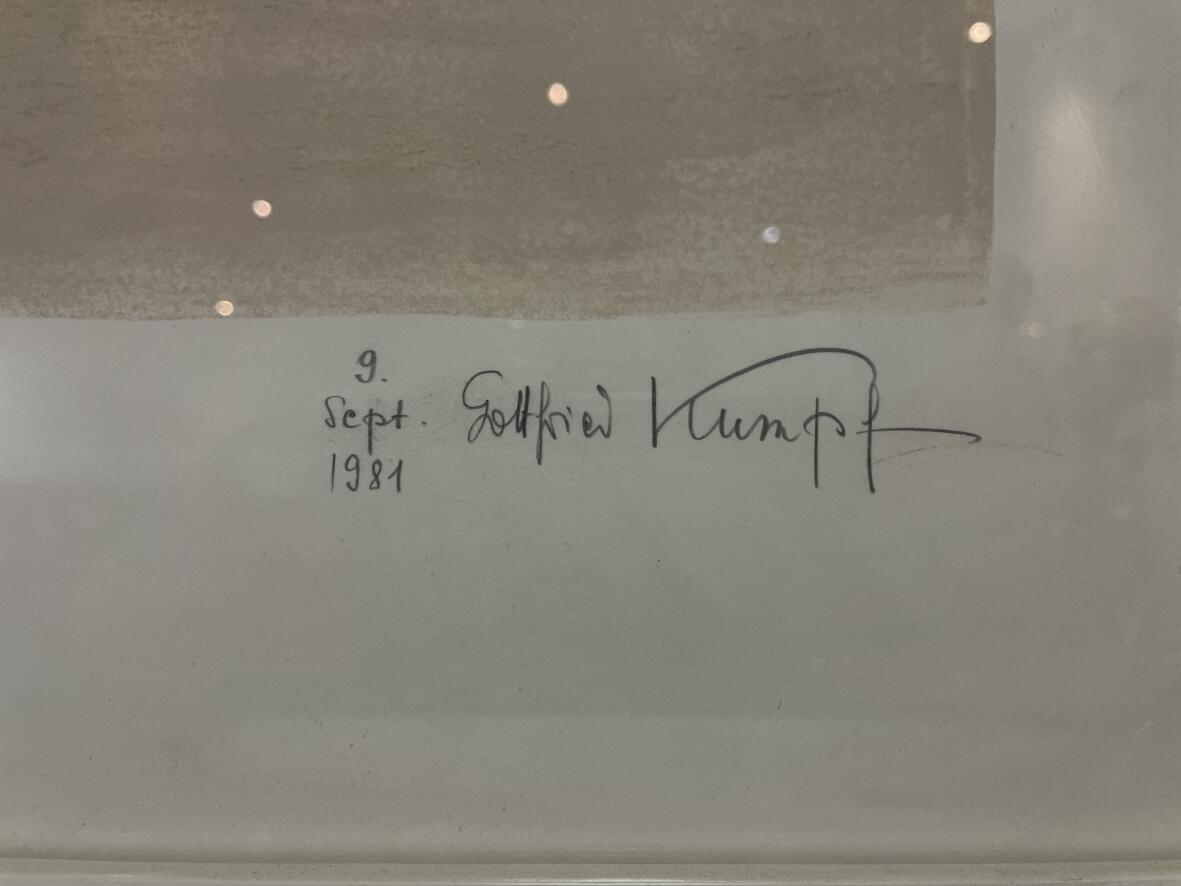 9.
Sept. Gottfried Kumpf
1981